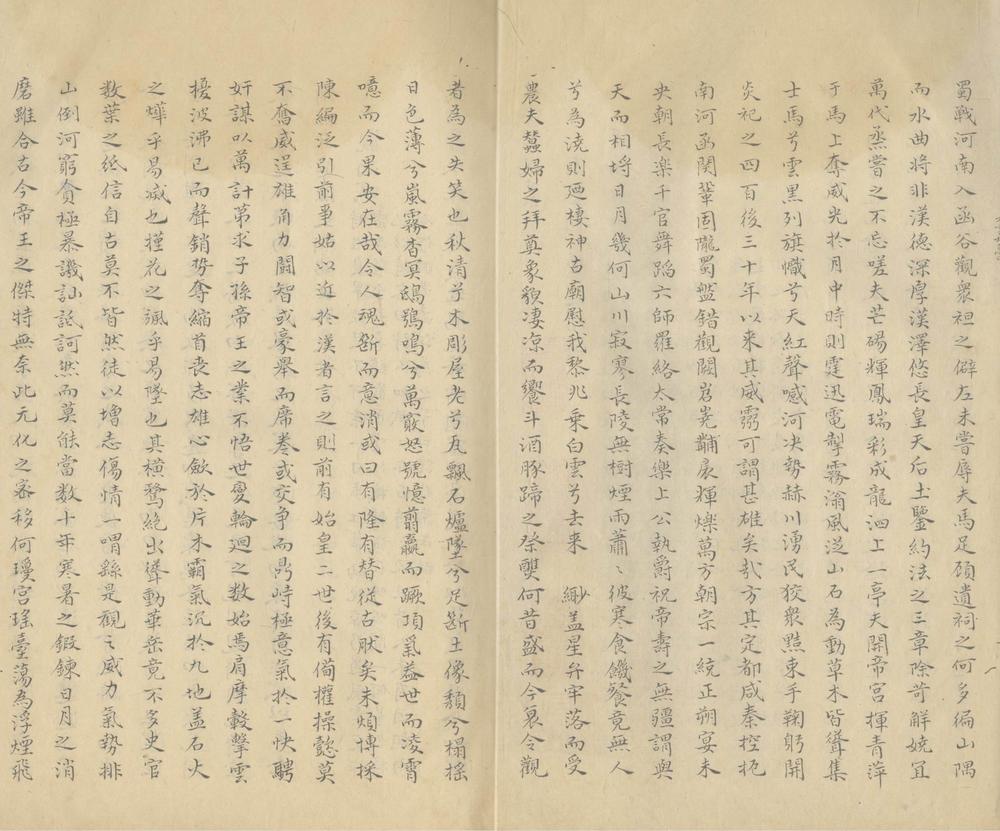 蜀戰河南入函谷觀衆袒之僻左未嘗辱夫馬足碩遺祠之何多徧山隅
而水曲將非漢德深厚漢澤悠長皇天后土鑒約法之三章除苛觧嬈宜
萬代烝嘗之不忘嗟夫芒碭輝鳳瑞彩成龍泗上一亭夫開帝宫揮青萍
于馬上奪威光於月中時則霆迅電掣霧滃風淰山石為動草木皆聳集
士馬兮雲黑列旗幟兮天紅聲喊河决勢赫川湧民狡衆黠束手鞠躬開
炎祀之四百後三十年以来其威霛可謂甚雄矣哉方其定都咸秦控扼
南河函関鞏固隴蜀盤錯觀闕岧嶤黼扆輝爍萬方朝宗一統正朔宴未
央朝長楽千官舞蹈六師羅絡太常奏樂上公執爵祝帝壽之無疆謂與
天而相埒日月幾何山川寂寥長陵無樹煙雨蕭〻彼寒食饑餮竟無人
兮為澆則廼棲神古廟慰我黎兆乗白雲兮去来 緲盖星弁牢落而受
農夫蠶婦之拜奠象貌凄凉而饗斗酒豚蹄之祭嬰何昔盛而今衰令觀
者為之失笑也秋清兮木彫屋老兮瓦飄石爐墜兮足斷土像頽兮榻揺
日色薄兮嵐霧杳冥鴟鴞鳴兮萬竅怒號憶翦嬴而蹶項氣益世而凌霄
噫而今果安在哉令人魂斷而意消或曰有隆有替從古肰矣未煩博採
陳編泛引前事姑以近扵漢者言之則前有始皇二世後有僃權操懿莫
不奮威逞雄角力闘智或豪舉而席巻或交争而鼎峙極意氣扵一快騁
奸謀以萬計第求子孫帝王之業不悟世變輪迴之数始焉肩摩轂擊雲
擾波沸已而聲銷㔟奪縮首喪志雄心歛於片木霸氣沉扵九地盖石火
之燁乎易㓕也槿花之颯乎易墜也其橫騖絶出聳動華岳竟不多史官
数葉之紙信自古莫不皆然徒以增志傷情一喟繇是觀之威力氣勢排
山倒河窮貪極暴譏訕詆訶然而莫能當数十年寒暑之鍜鍊日月之消
磨雖合古今帝王之傑特無奈此元化之宻移何瓊宫瑤臺蕩為浮煙飛